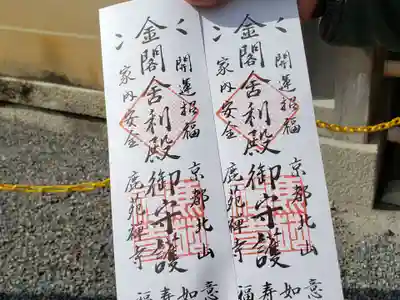 開運招福
金閣舎利殿御守護
家内安全
京都北山
鹿苑禅寺
如意
福寿
開運招福
金閣舎利殿御守護
家内安全
京都北山
鹿苑禅寺
如意
福寿